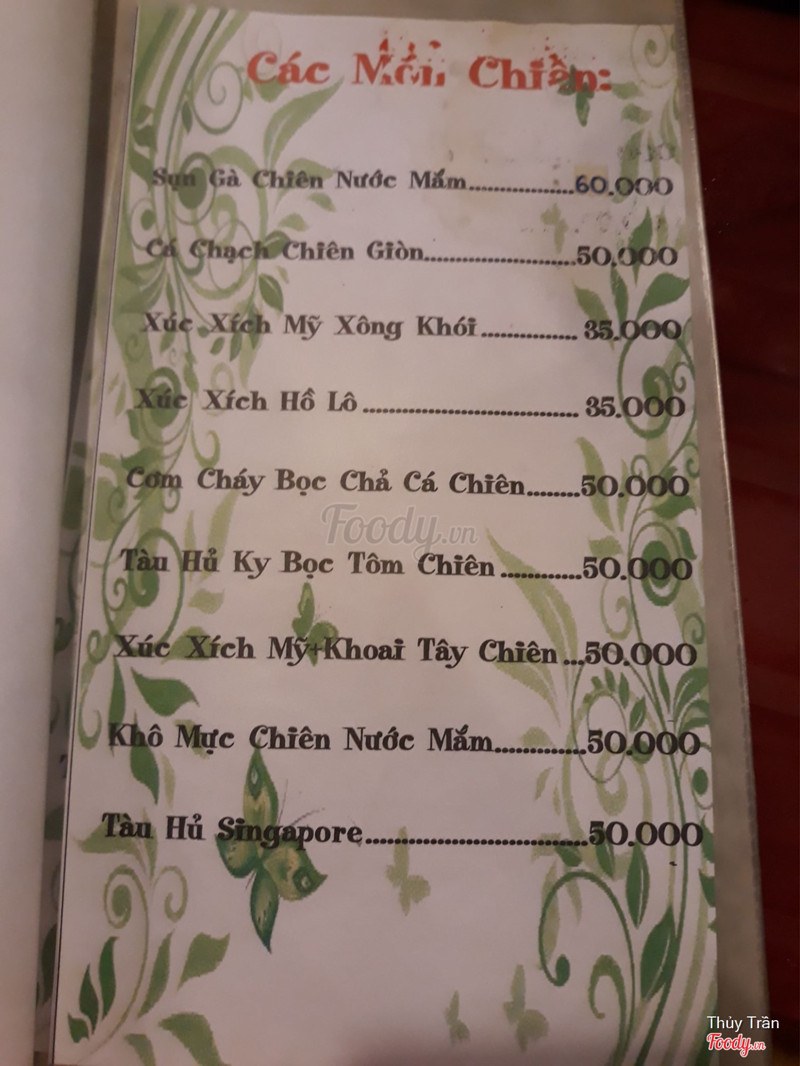 Các Món Chiên:
Sụn Gà Chiên Nước Mắm..................60.000
Cá Chạch Chiên Giòn.........................50.000
Xúc Xích Mỹ Xông Khói................ 35.000
Xúc Xích Hồ Lô .................................... 35.000
Cơm Cháy Bọc Chả Cá Chiên.........50.000
Tàu Hủ Ky Bọc Tôm Chiên .............50.000
Xúc Xích Mỹ+Khoai Tây Chiên ...50.000
Khô Mực Chiên Nước Mắm...............50.000
Tàu Hủ Singapore.....................................50.000
Foody.vn
Thủy Trần
Foody.vn